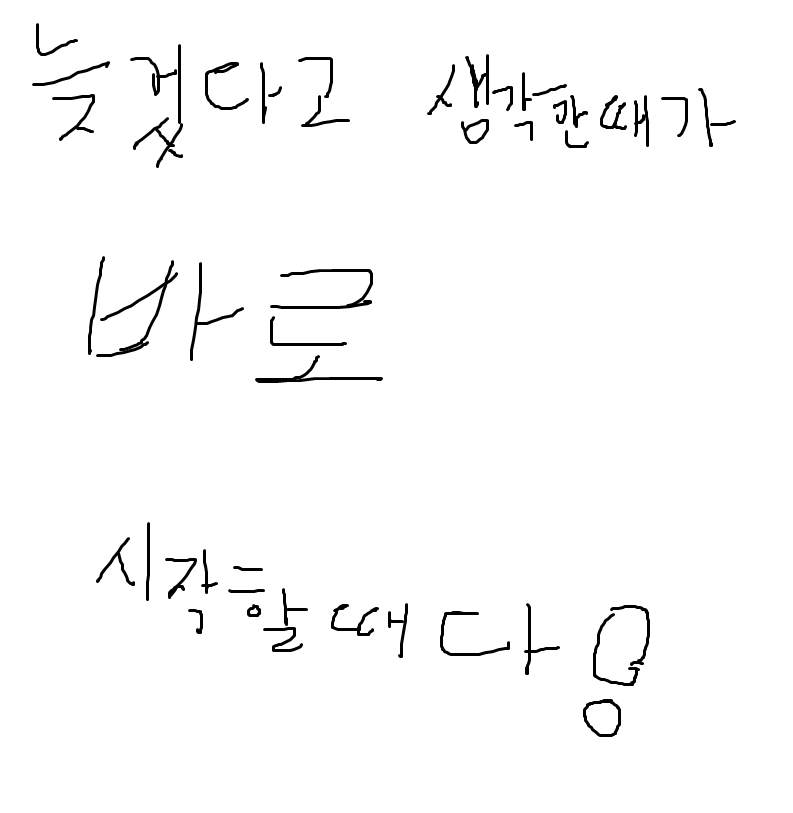 늦겄다고 생각한때가
바로
시작할때다!